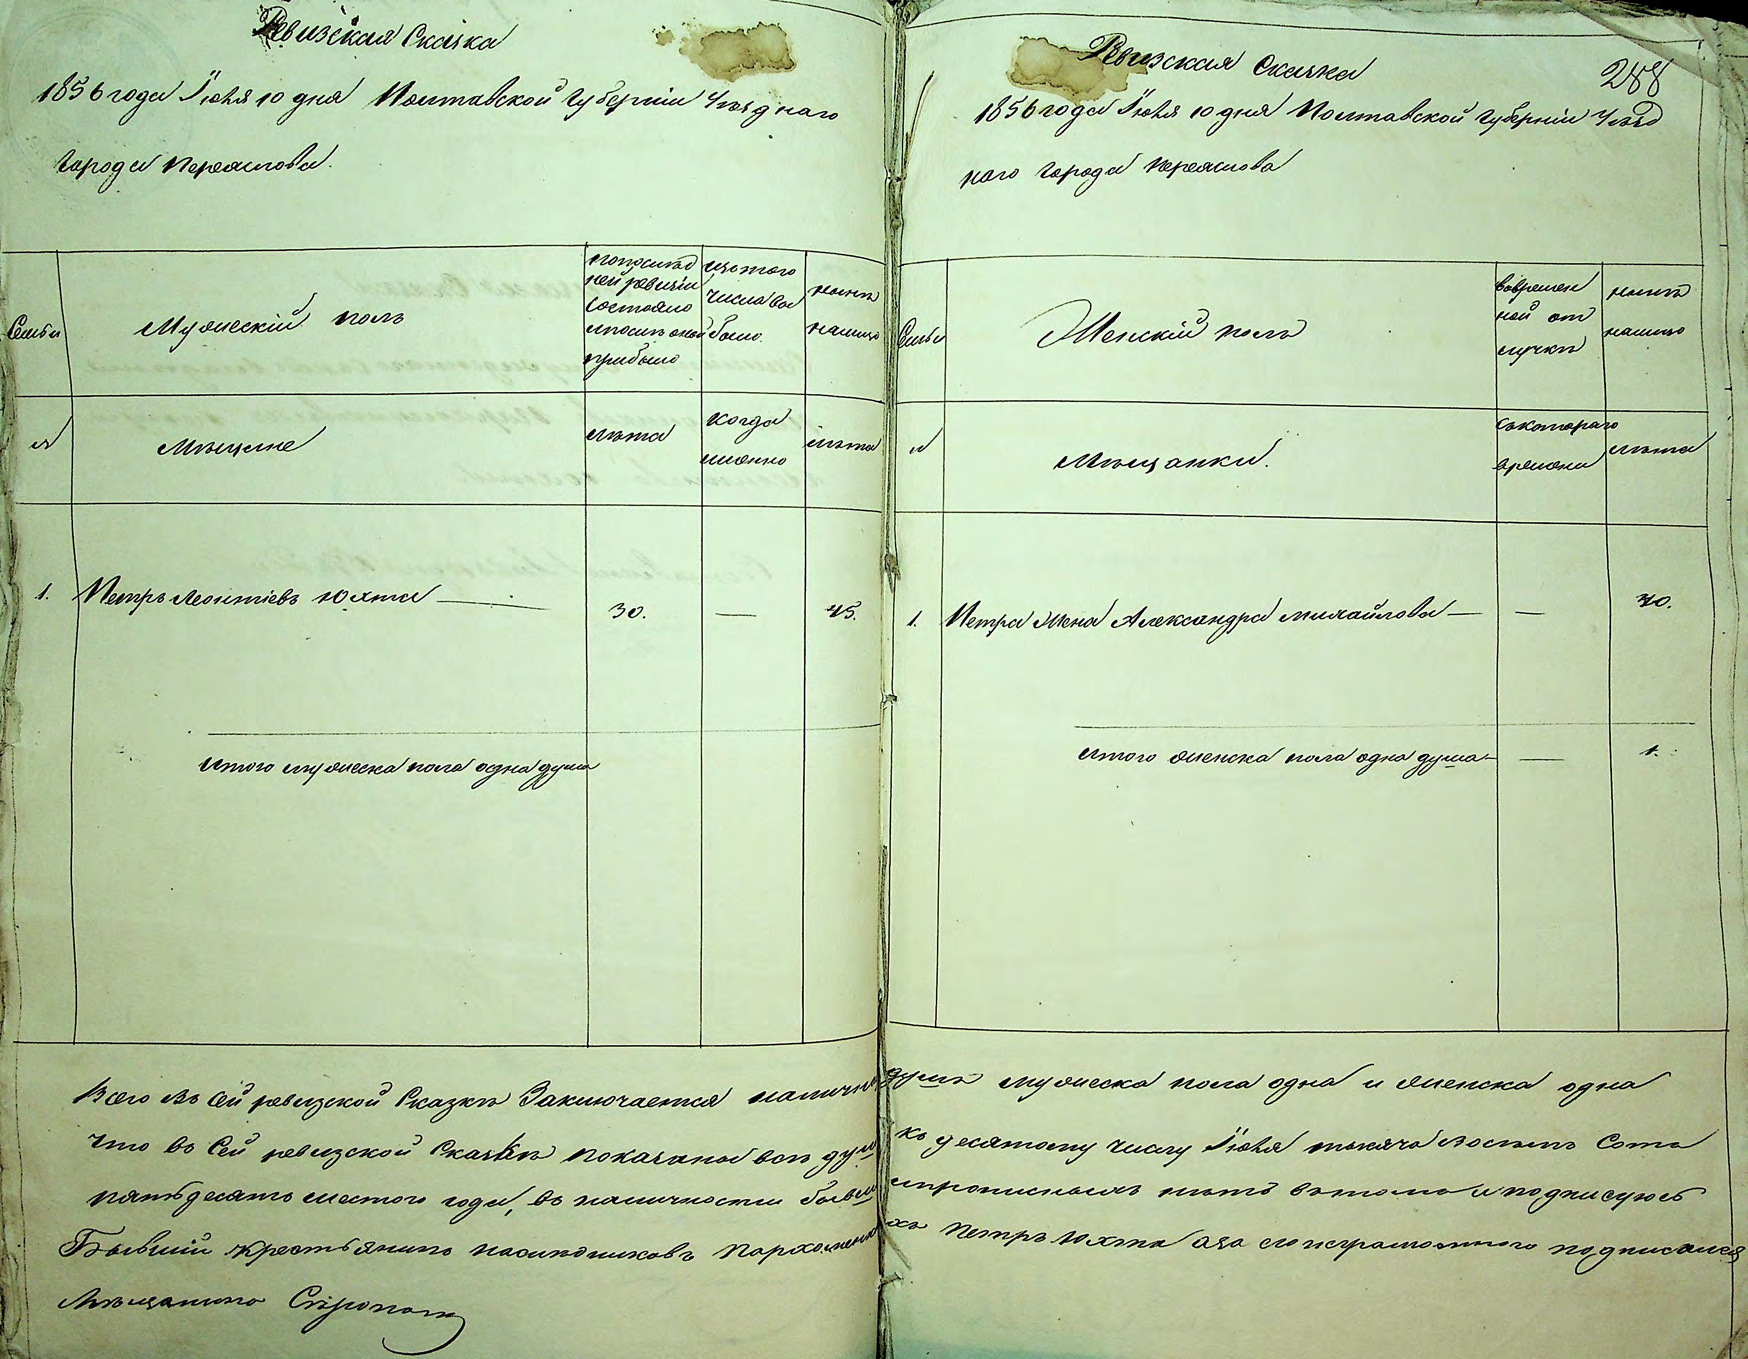 Ревизская Сказка
1856 года Іюня 10 дня Полтавской губерніи Уѣзднаго
города Переяслова.
Семьи
Мужескій полъ
попослѣд
ней ревизіи
состояло
ипослѣ оной
прибыло
изтого
числа вы
было.
нынѣ
налицо
Мѣщане
лѣта
когда
именно
лѣта
1. Петръ Леонтіевъ Юхта
30. — 45.
итого мужеска пола одна душа
Ревизская Сказка
288
1856 года Іюня 10 дня Полтавской губерніи Уѣзд
наго города Переяслова
Семьи
Женскій полъ
вовремен
ной от
лучкѣ
нынѣ
налицо
Мѣщанки.
скотораго
времени
лѣта
1. Петра Жена Александра Михайлова — — 40.
итого женска пола одна душа — — 1.
Всего въ сей ревизской Сказкѣ Заключается налично душъ мужеска пола одна и женска одна
Что въ Сей ревизской Сказкѣ показаны всѣ души къ десятому числу Іюня тысяча восемь Сотъ
пятьдесятъ шестого года, въ наличности бывши и прописныхъ нѣтъ въ томъ и подписуюсь
Бывшій крестьянинъ наслѣдниковъ Пархоменковыхъ Петръ Юхта а за его неграмотного подписался
Мѣщанинъ